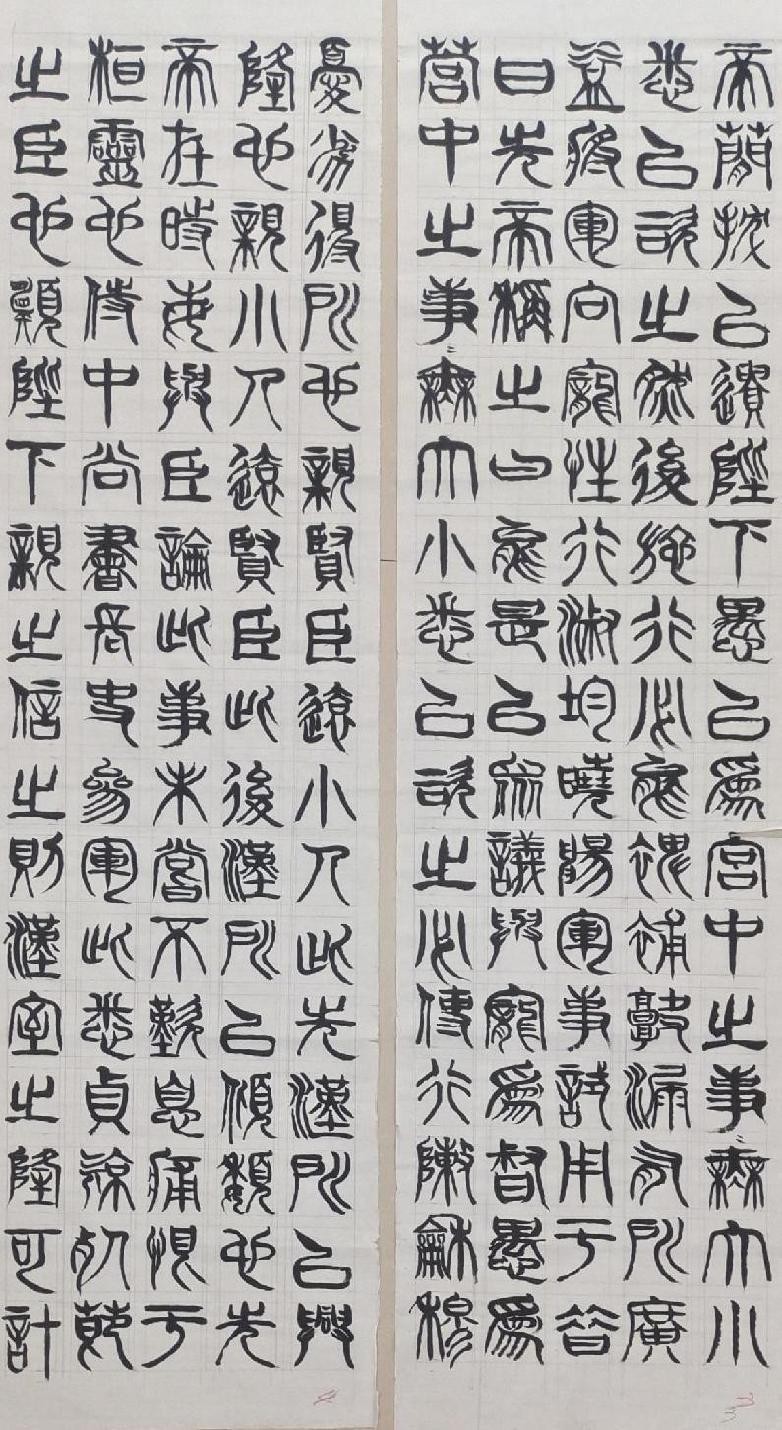 帝簡拔以遺陛下愚以為宮中之事〻無大小
悉以諮之然後施行必能裨補闕漏有所廣
益將軍向寵性行淑均曉暢軍事試用于昔
日先帝稱之曰能是以眾議舉寵為督愚為
營中之事〻無大小悉以諮之必使行陳和穆
憂劣得所也親賢臣遠小人此先漢所以興
隆也親小人遠賢臣此後漢所以傾頹也先
帝在時每與臣論此事未嘗不歎息痛恨于
桓靈也侍中尚書長史參軍此悉貞諒死節
之臣也願陛下親之信之則漢室之隆可計